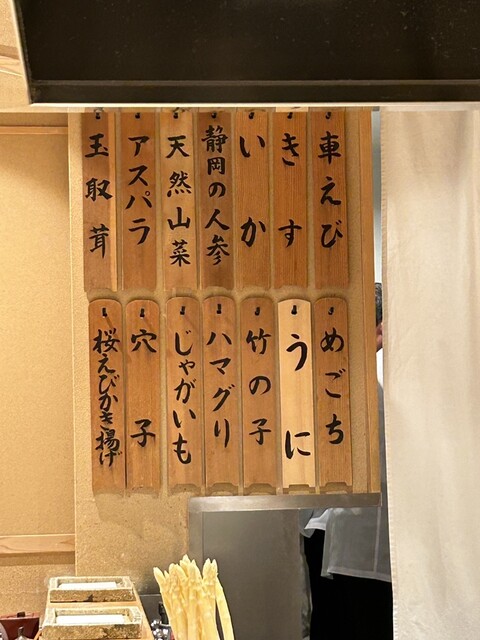 車えび
きす
いか
静岡の人参
天然山菜
アスパラ
玉取茸
めごち
うに
竹の子
ハマグリ
じゃがいも
穴子
桜えびかき揚げ